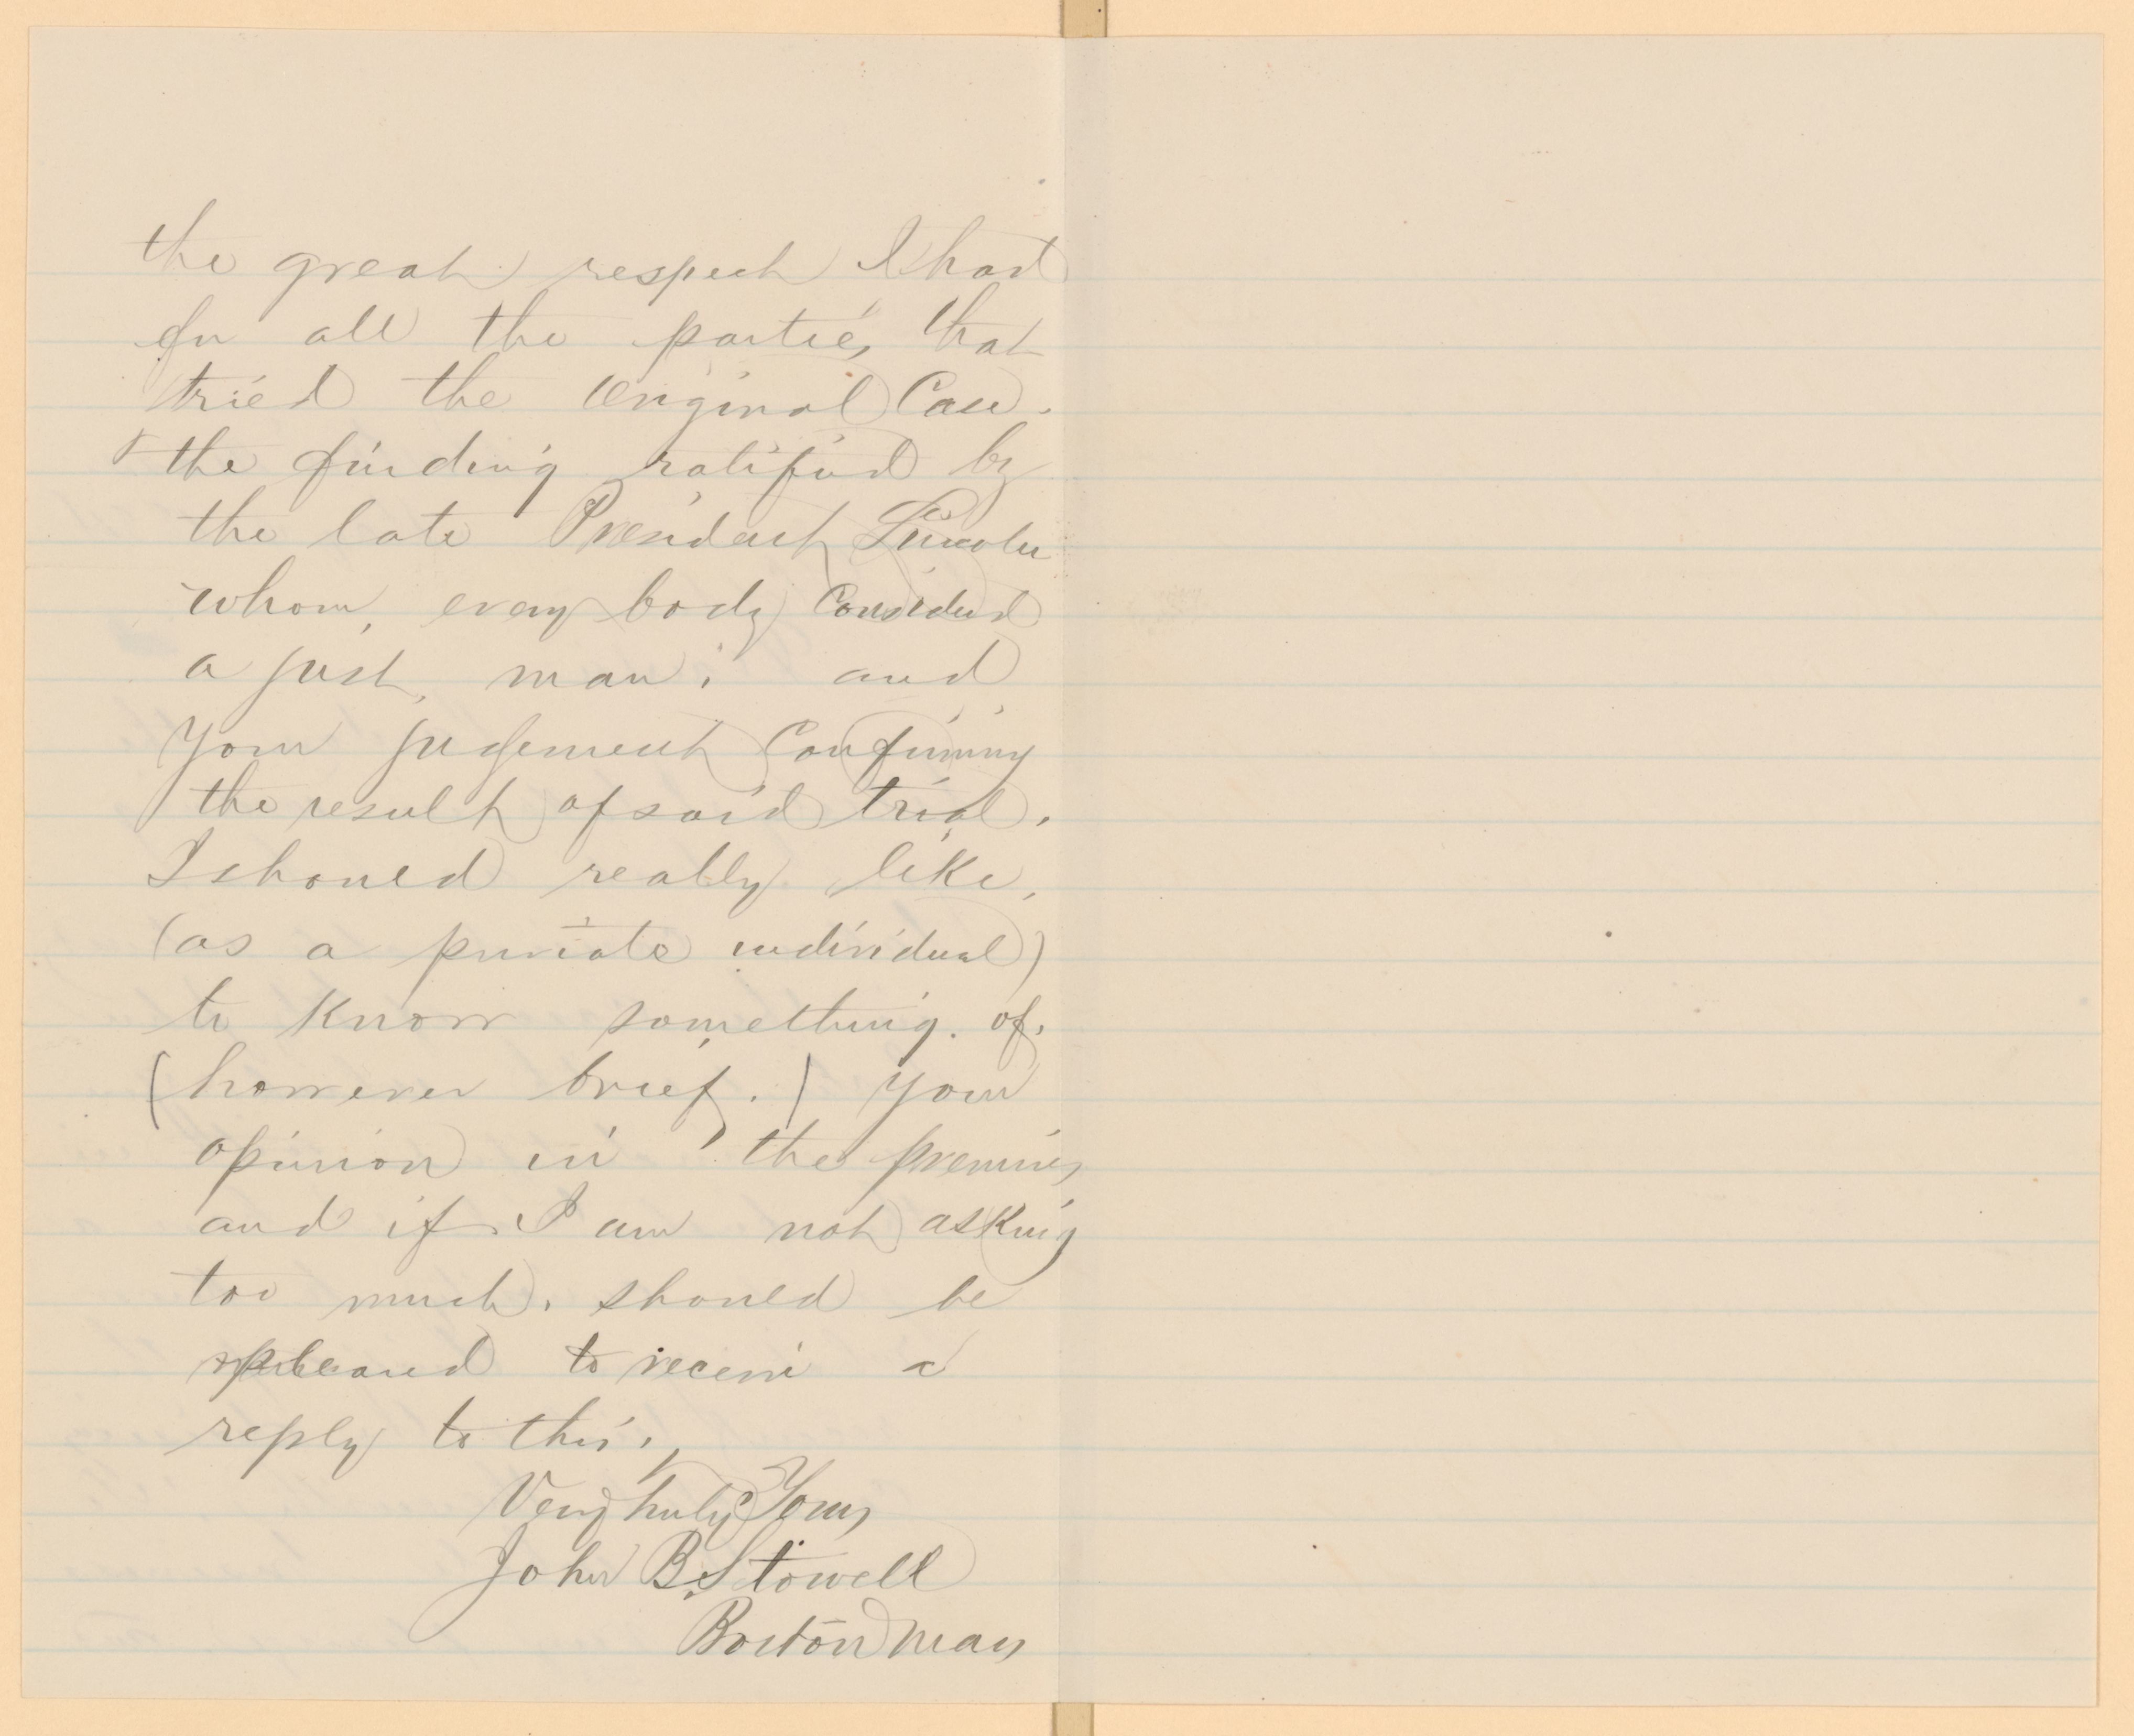 the great respect I had
for all the parties that
tried the Original Case.
the finding ratified by
the late President Lincoln
whom, every body Considered
a just, man. and
Your judgement Confirming
the result of said trial.
I should really like,
(as a private individual)
to Know something. of.
(however brief.) your
opinion in the premises
and if I am not asking
too much. should be
pleased to receive a
reply to this.
Very truly Yours
John B. Stowell
Boston Mass